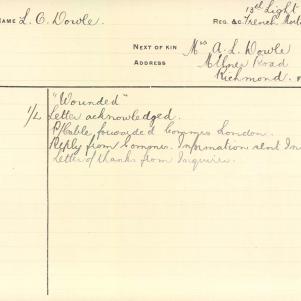 NAME L. C. Dowle.
REG. &c 13th Light
Trench Mort
NEXT OF KIN Mrs A. L. Dowle
ADDRESS Milner Road
Richmond.
"Wounded"
1/L Letter acknowledged.
P/Cable forwarded Commrs London.
Reply from Commrs. Information sent In
Letter of thanks from Inquirer.